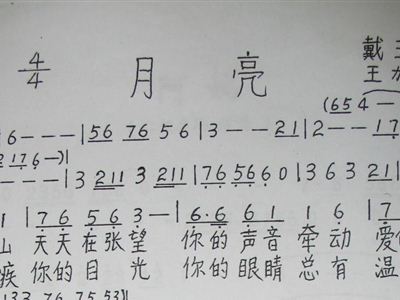 4/4 月 亮 戴
王
(65 4 —
6 - - - | 56 76 5 6 | 3 — - - 21 | 2 — - - 17
176 —)|
- - - | 3 211 3 211 | 76 56 6 0 | 3 6 3 21 |
1 | 76 56 3 — | 6·6 61 1 6 | 7
山 天天在张望 你的声音 牵动 爱
疾 你的目光 你的眼睛 总有 温
33 76 75 53)|